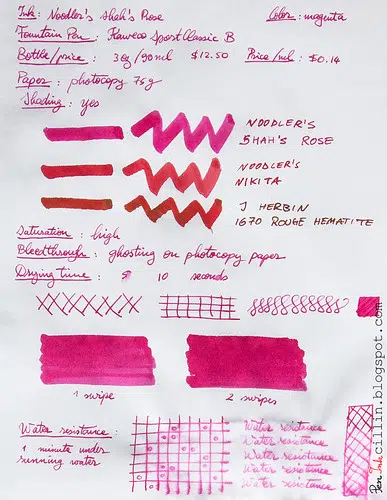 Ink: Noodler's Shah's Rose Color: magenta
Fountain Pen: Kaweco Sport Classic B
Bottle/price: 3oz/90ml $12.50 Price/ml: $0.14
Paper: photocopy 75g
Shading: yes
NOODLER'S
SHAH'S ROSE
NOODLER'S
NIKITA
J HERBIN
1670 ROUGE HEMATITE
Saturation: high
Bleedthrough: ghosting on photocopy paper
Drying time: 10 seconds
1 swipe 2 swipes
Water resistance:
1 minute under
running water
Water resistance
Water resistance
Water resistance
Water resistance
Water resistance
Water resistance
Pen Ink cillin.blogspot.com